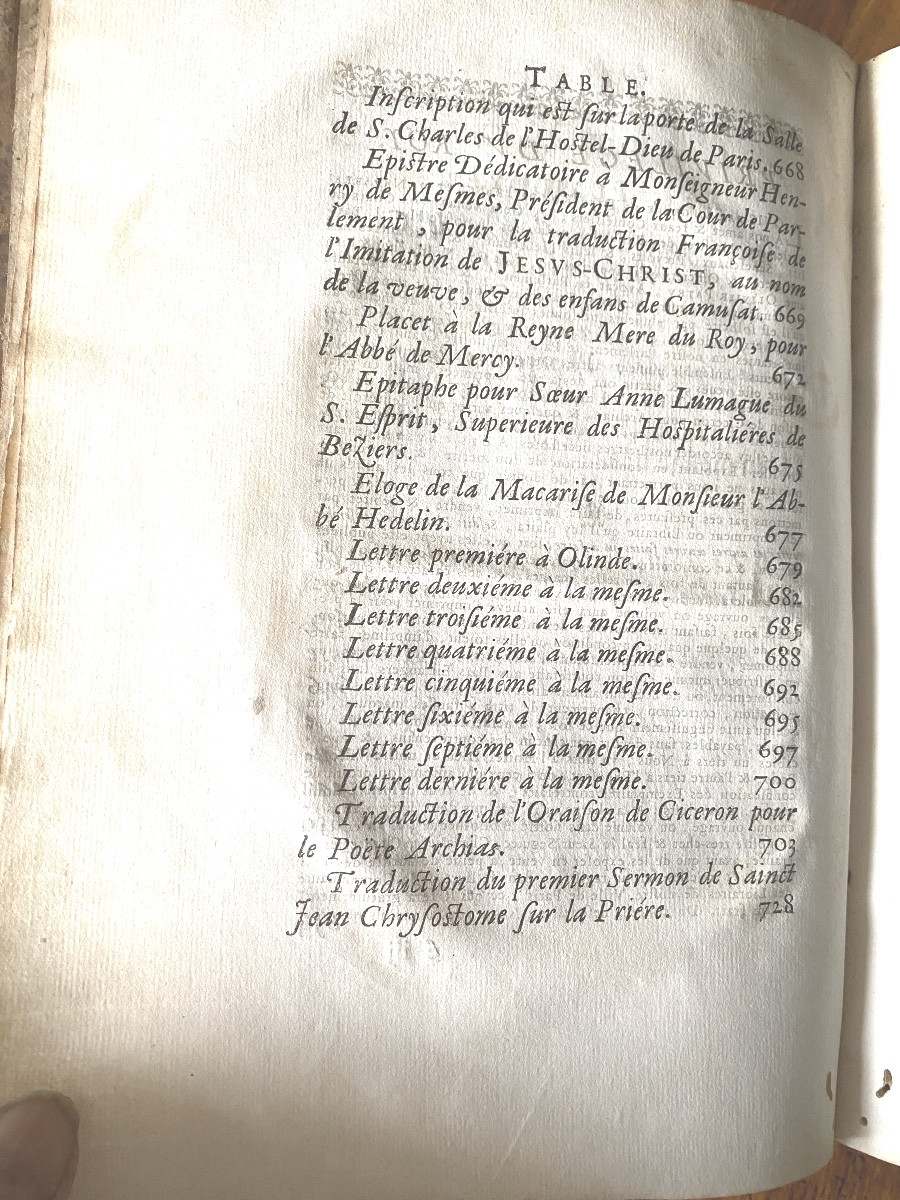 TABLE.
Inſcription qui eſt ſur la porte de la Salle
de S. Charles de l'Hoſtel-Dieu de Paris. 668
Epiſtre Dédicatoire à Monſeigneur Hen-
ry de Meſmes, Préſident de la Cour de Par-
lement, pour la traduction Françoiſe de
l'Imitation de JESVS-CHRIST, au nom
de la veuve, & des enfans de Camuſat. 669
Placet à la Reyne Mere du Roy, pour
l'Abbé de Mercy. 672
Epitaphe pour Sœur Anne Lumague du
S. Eſprit, Superieure des Hoſpitaliéres de
Beziers. 675
Eloge de la Macariſe de Monſieur l'Ab-
bé Hedelin. 677
Lettre premiére à Olinde. 679
Lettre deuxiéme à la meſme. 682
Lettre troiſiéme à la meſme. 685
Lettre quatriéme à la meſme. 688
Lettre cinquiéme à la meſme. 692
Lettre ſixiéme à la meſme. 695
Lettre ſeptiéme à la meſme. 697
Lettre derniére à la meſme. 700
Traduction de l'Oraiſon de Ciceron pour
le Poëte Archias. 703
Traduction du premier Sermon de Sainct
Jean Chryſoſtome ſur la Priére. 728